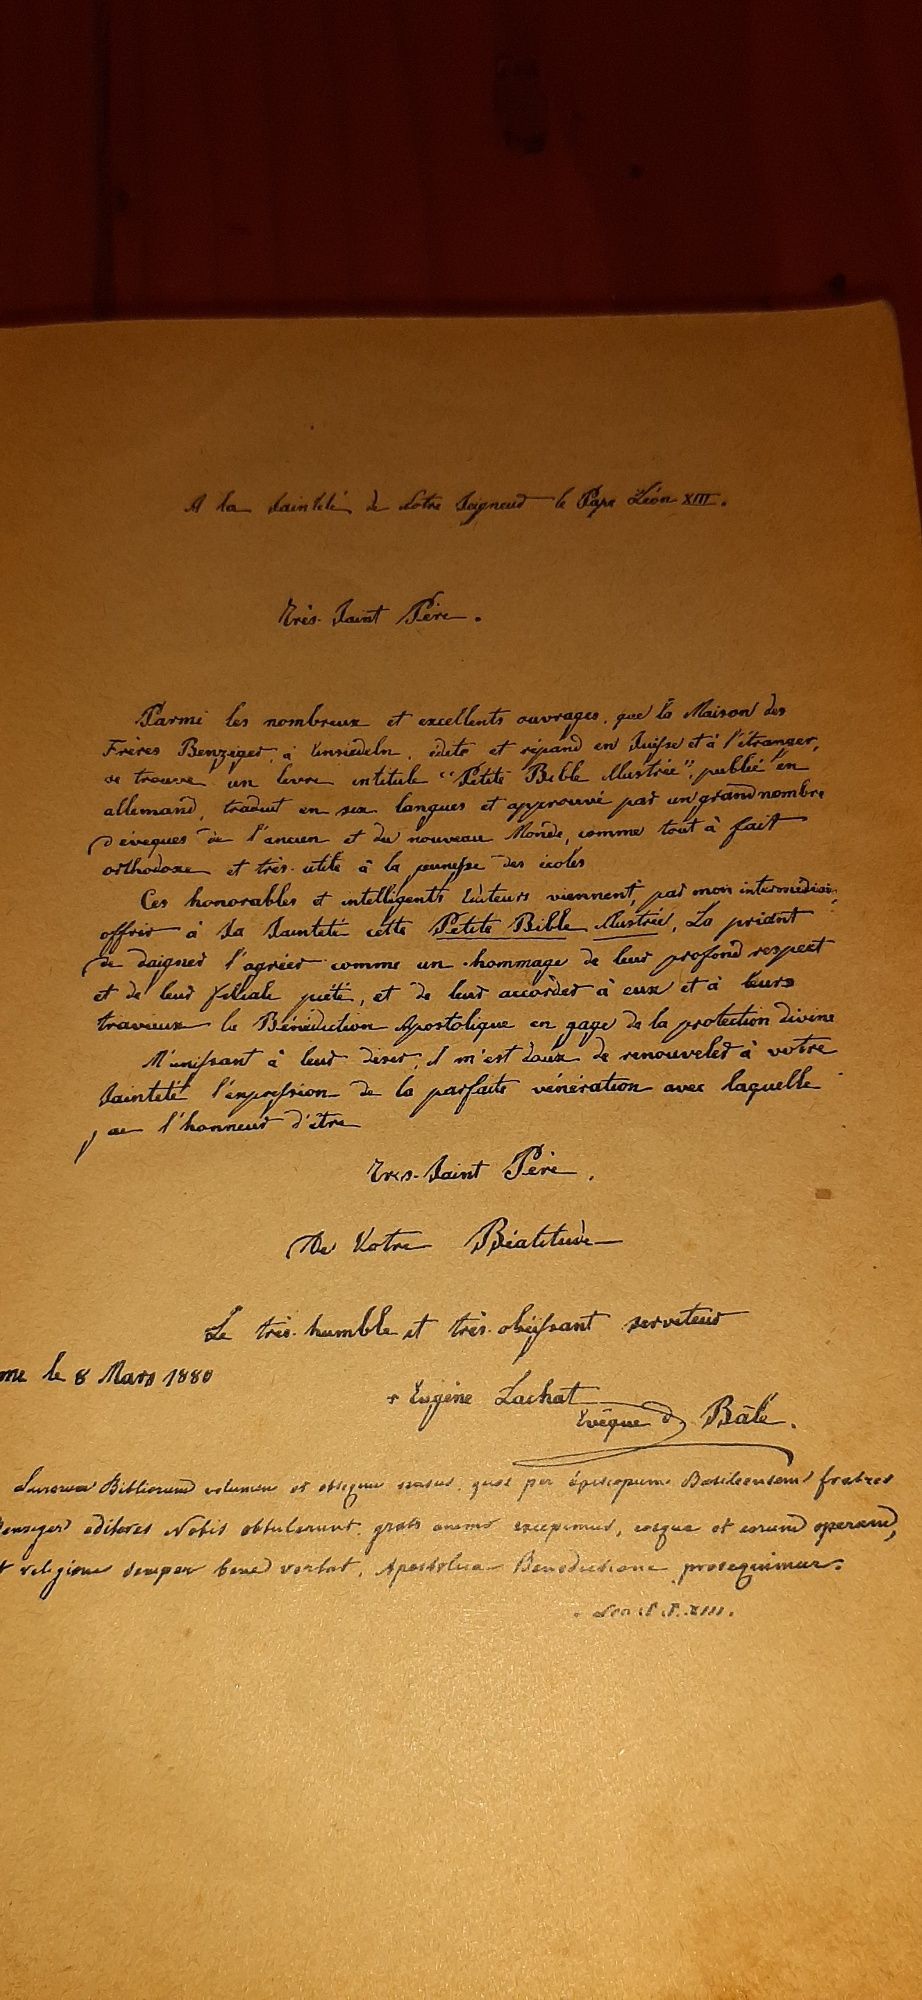 A la Sainteté de Notre Seigneur le Pape Léon XIII.
Très-Saint Père.
Parmi les nombreux et excellents ouvrages, que la Maison des
Frères Benziger, à Einsiedeln, édite et répand en Suisse et à l'étranger,
se trouve un livre intitulé "Petite Bible Illustrée", publié en
allemand, traduit en six langues et approuvé par un grand nombre
d'évêques de l'ancien et du nouveau Monde, comme tout à fait
orthodoxe et très-utile à la jeunesse des écoles
Ces honorables et intelligents Editeurs viennent, par mon intermédiaire,
offrir à Sa Sainteté cette Petite Bible Illustrée, La priant
de daigner l'agréer comme un hommage de leur profond respect
et de leur filiale piété, et de leur accorder à eux et à leurs
travaux la Bénédiction Apostolique en gage de la protection divine
M'unissant à leur désir, il m'est doux de renouveler à votre
Sainteté l'expression de la parfaite vénération avec laquelle
j'ai l'honneur d'être
Très-Saint Père,
De Votre Béatitude
Le très-humble et très-obéissant serviteur
me le 8 Mars 1880
+ Eugène Lachat
Evêque de Bâle.
Bibliorum volumen et quae per episcopum Basileensem fratres
Benziger editores Nobis obtulerunt, grato animo excepimus, eosque et eorum operam,
religioni semper bene vertat, Apostolica Benedictione prosequimur.
Leo P.P. XIII.